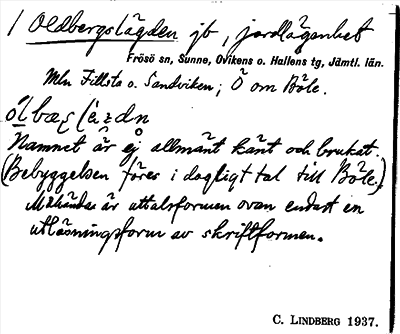 1 Oldbergslägden jb, jordlägenhet
Frösö sn, Sunne, Ovikens o. Hallens tg, Jämtl. län.
Mln Fillsta o. Sandviken; Ö om Böle.
Namnet är ej allmänt känt och brukat.
(Bebyggelsen föres i dagligt tal till Böle.)
Måhända är uttalsformen ovan endast en
utläsningsform av skriftformen.
C. LINDBERG 1937.